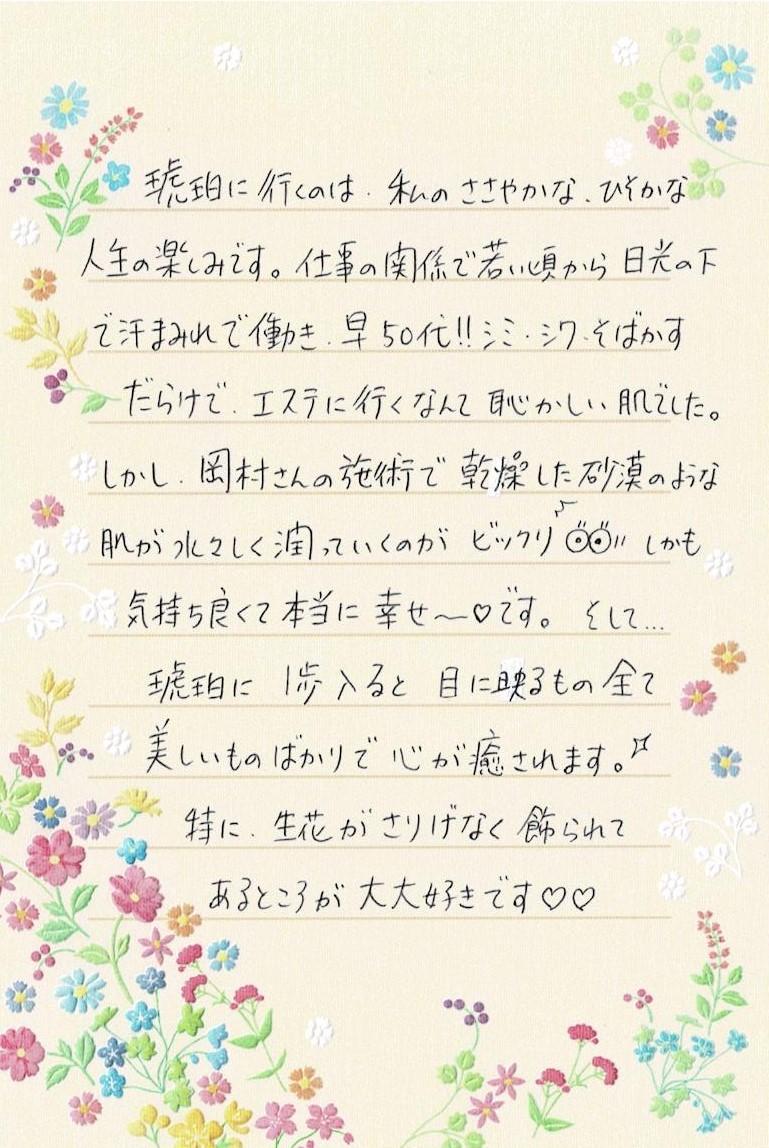 琥珀に行くのは、私のささやかな、ひそかな
人生の楽しみです。仕事の関係で若い頃から日光の下
で汗まみれで働き、早50代!!シミ・シワ・そばかす
だらけで、エステに行くなんて恥かしい肌でした。
しかし、岡村さんの施術で乾燥した砂漠のような
肌が水々しく潤っていくのがビックリ!!しかも
気持ち良くて本当に幸せ〜♡です。そして...
琥珀に1歩入ると目に映るもの全て
美しいものばかりで心が癒されます。
特に、生花がさりげなく飾られて
あるところが大大好きです♡♡